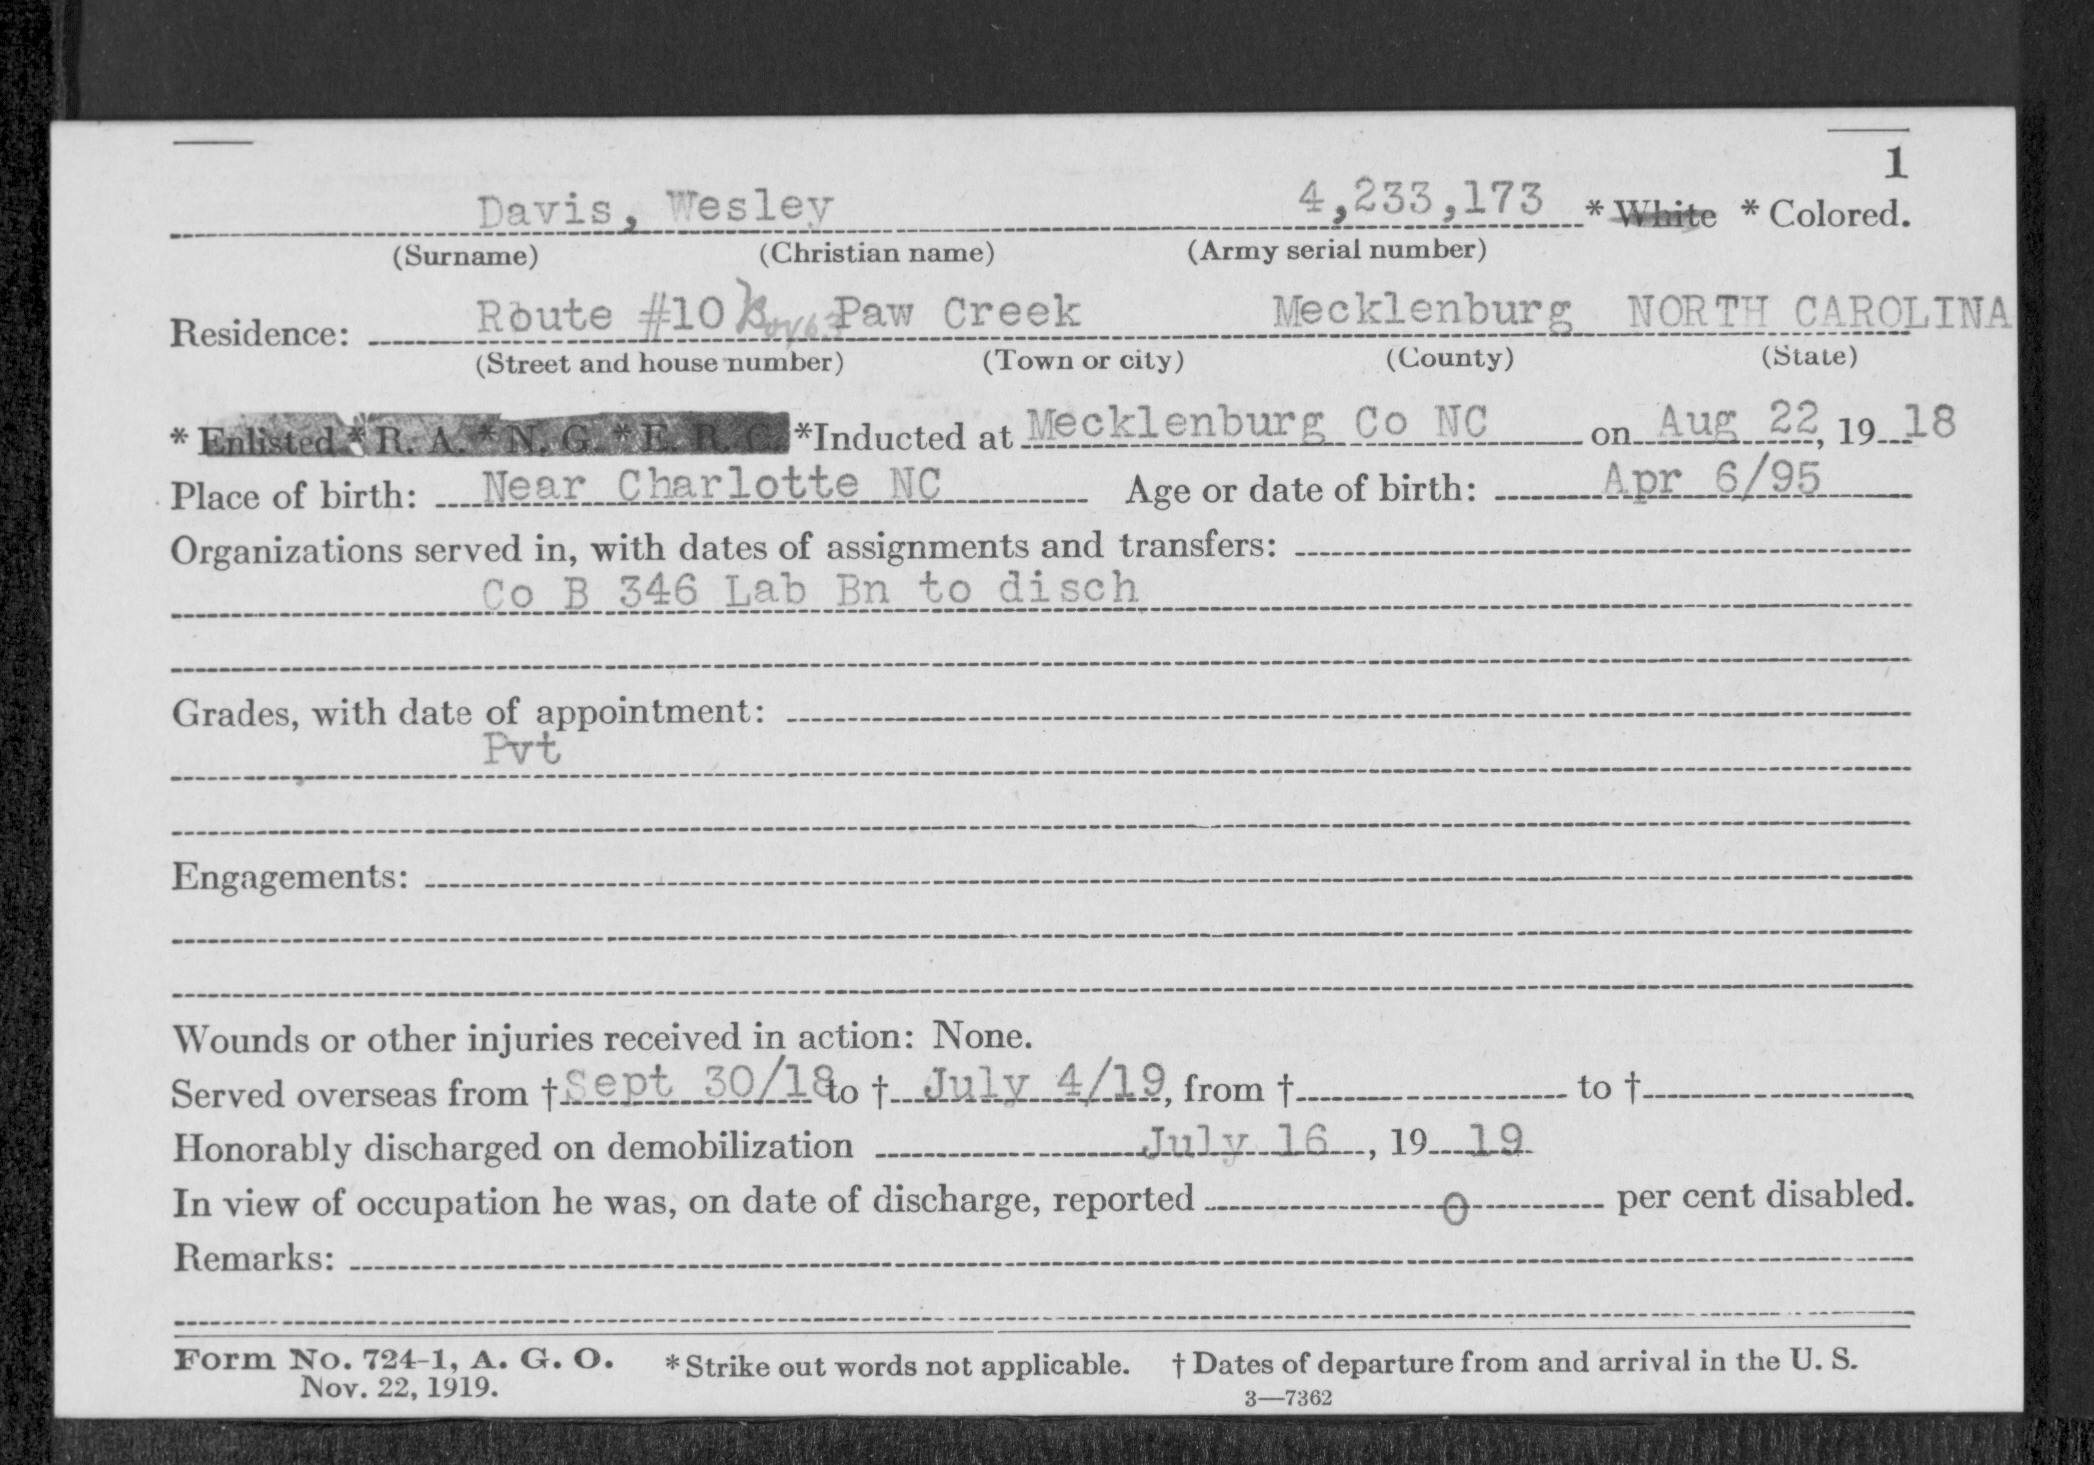 1
Davis, Wesley 4,233,173 * White * Colored.
(Surname) (Christian name) (Army serial number)
Residence: Route #10 Paw Creek Mecklenburg NORTH CAROLINA
(Street and house number) (Town or city) (County) (State)
* Enlisted * R. A. * N. G. * E. R. C. *Inducted at Mecklenburg Co NC on Aug 22, 19 18
Place of birth: Near Charlotte NC Age or date of birth: Apr 6/95
Organizations served in, with dates of assignments and transfers:
Co B 346 Lab Bn to disch
Grades, with date of appointment:
Pvt
Engagements:
Wounds or other injuries received in action: None.
Served overseas from † Sept 30/18 to † July 4/19, from † to †
Honorably discharged on demobilization July 16, 19 19
In view of occupation he was, on date of discharge, reported 0 per cent disabled.
Remarks:
Form No. 724-1, A. G. O. * Strike out words not applicable. † Dates of departure from and arrival in the U. S.
Nov. 22, 1919. 3—7362